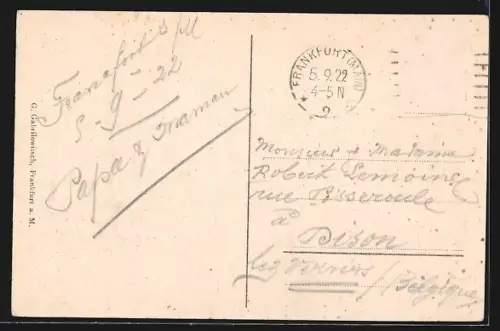 Francfort s/M
5-9-22
Papa & Maman
G. Gabrilowitsch, Frankfurt a. M.
FRANKFURT (MAIN)
5.9.22
4-5 N
* 2
Monsieur & Madame
Robert Lemoine
rue Pisseroule
à
Dison
lez Verviers /Belgique